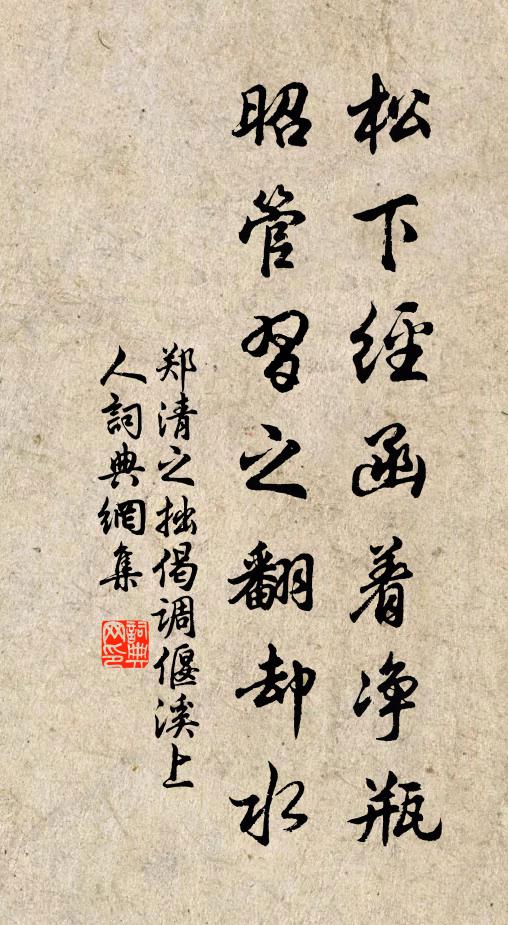 松下經函着净瓶
昭管習之翻却水
郑清之拙偈調偃溪上
人詞典網集
詞典
网印